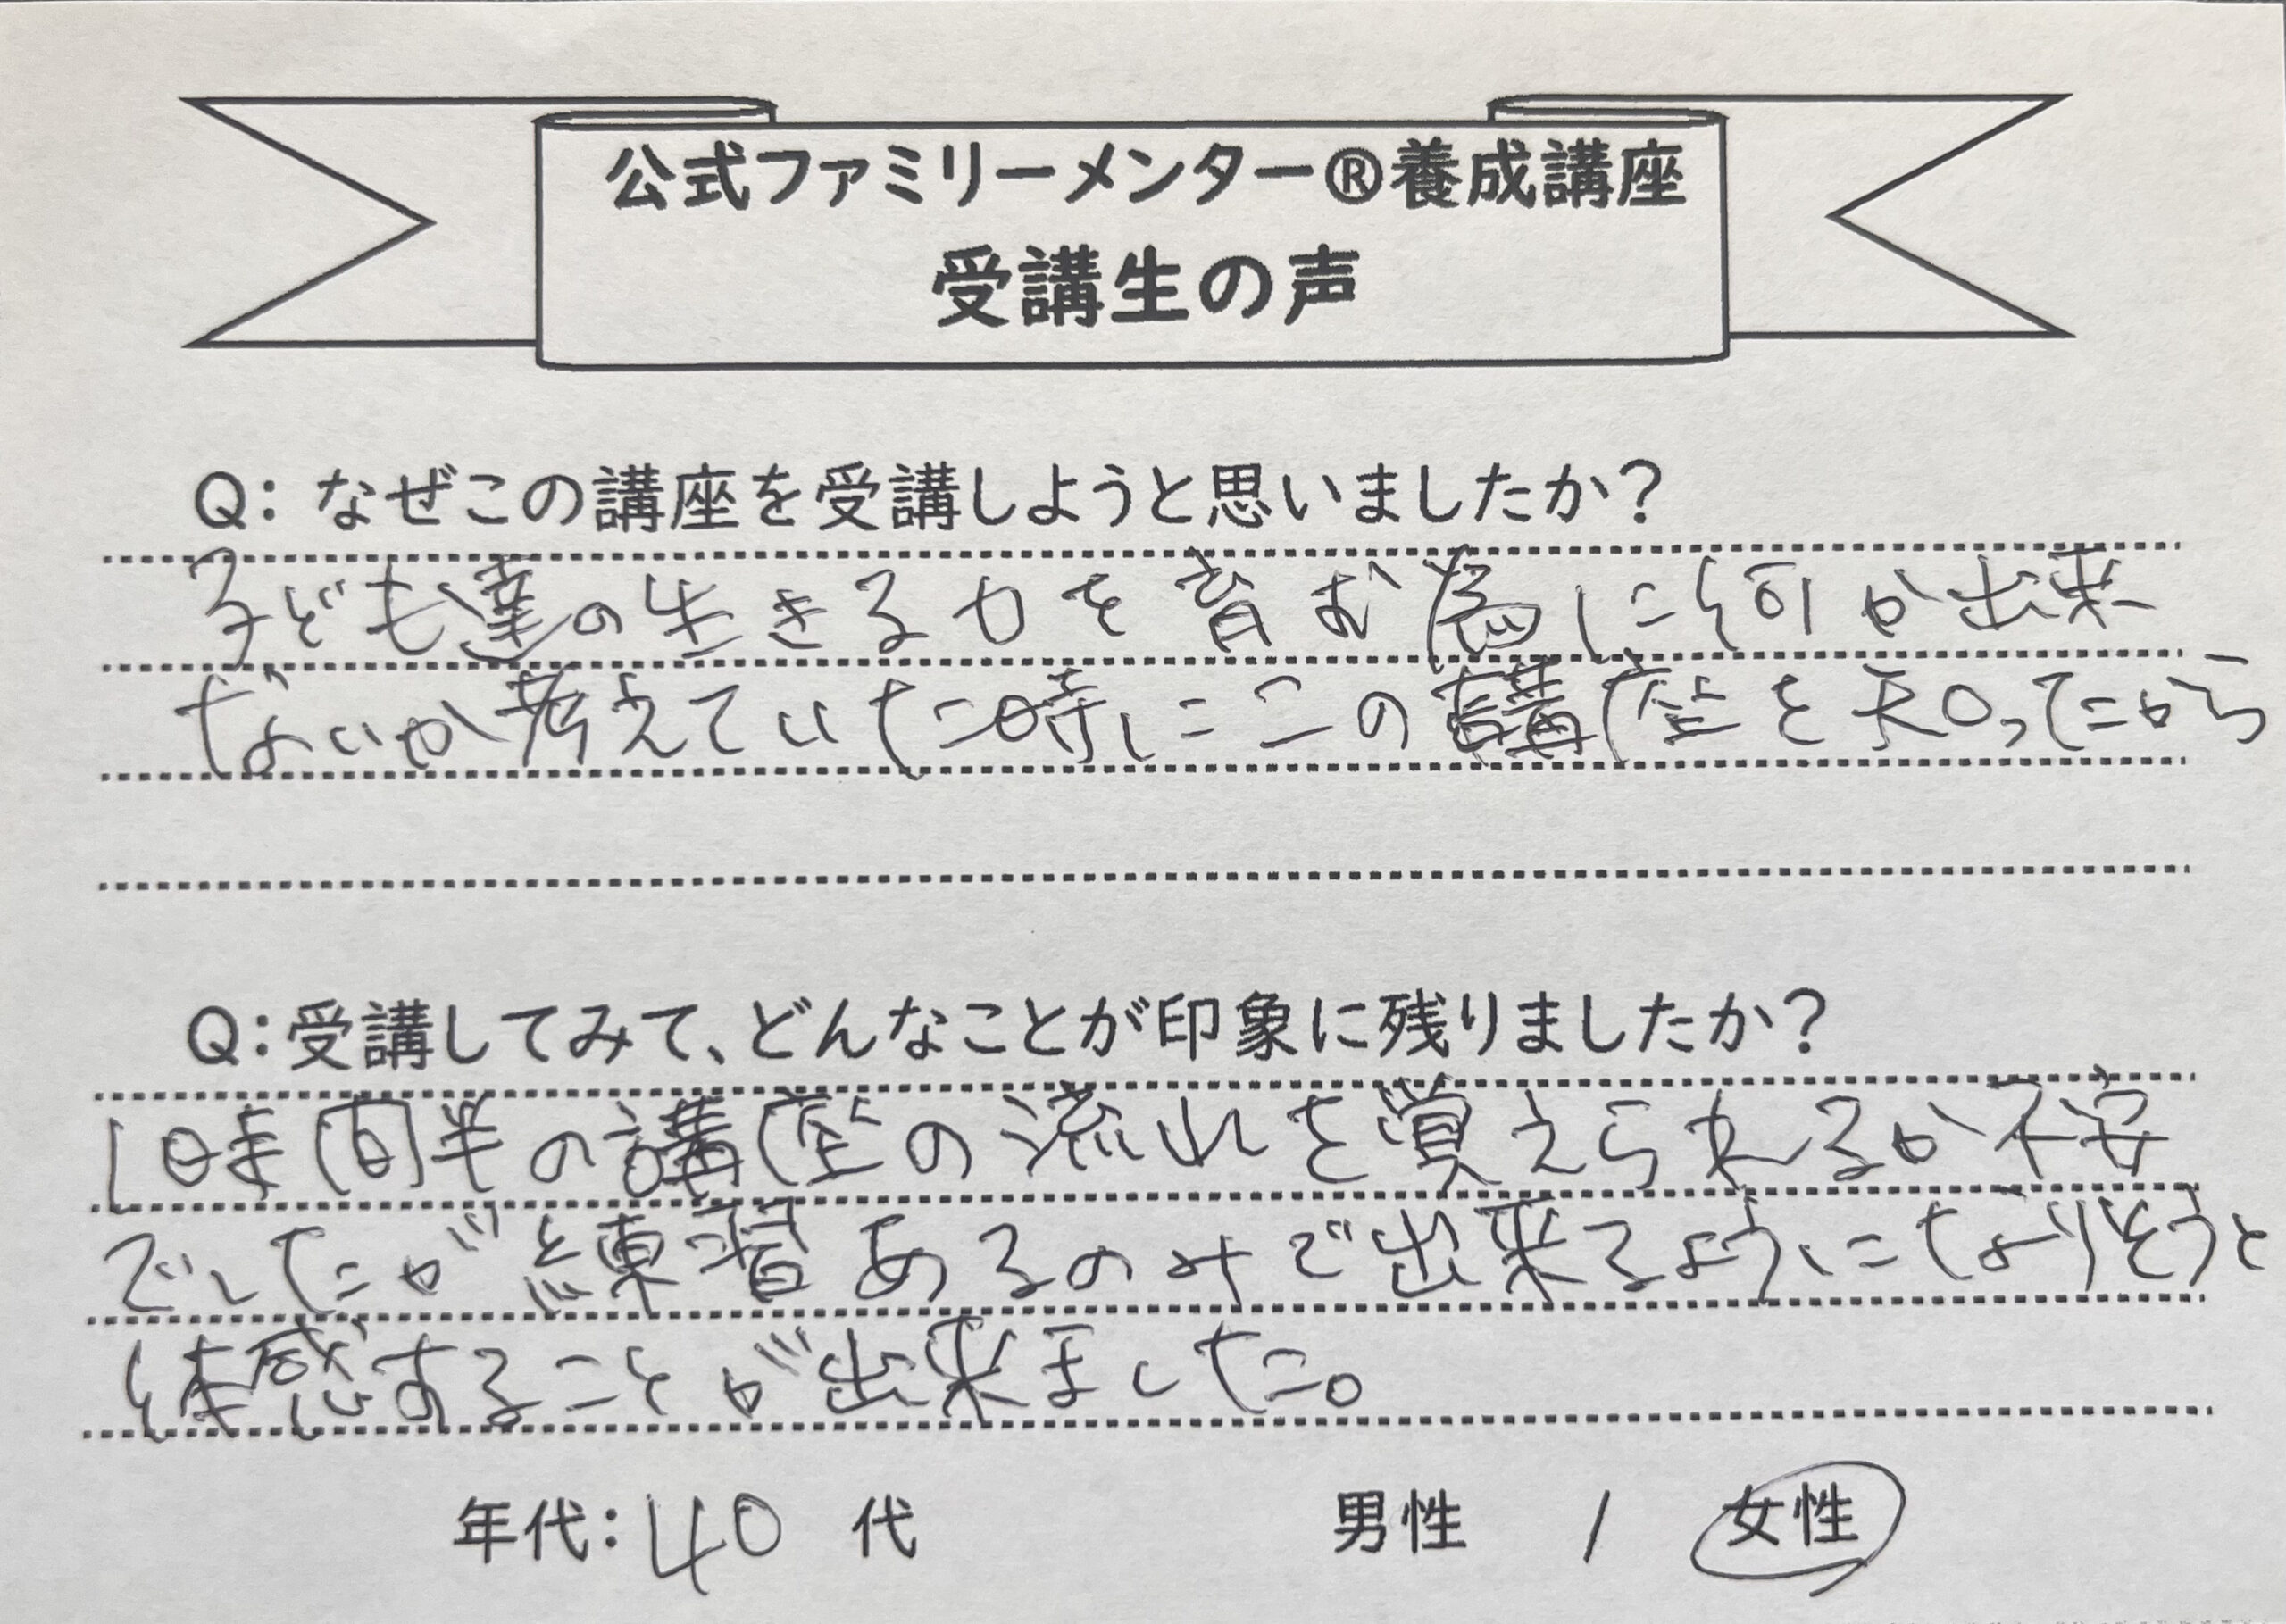 公式ファミリーメンター®養成講座
受講生の声
Q: なぜこの講座を受講しようと思いましたか?
子ども達の生きる力を育む為に何か出来
ないか考えていた時にこの講座を知ったから
Q:受講してみて、どんなことが印象に残りましたか?
1時間半の講座の流れを覚えられるか不安
でしたが練習あるのみで出来るようになりそうと
体感することが出来ました。
年代:40 代 男性 / 女性